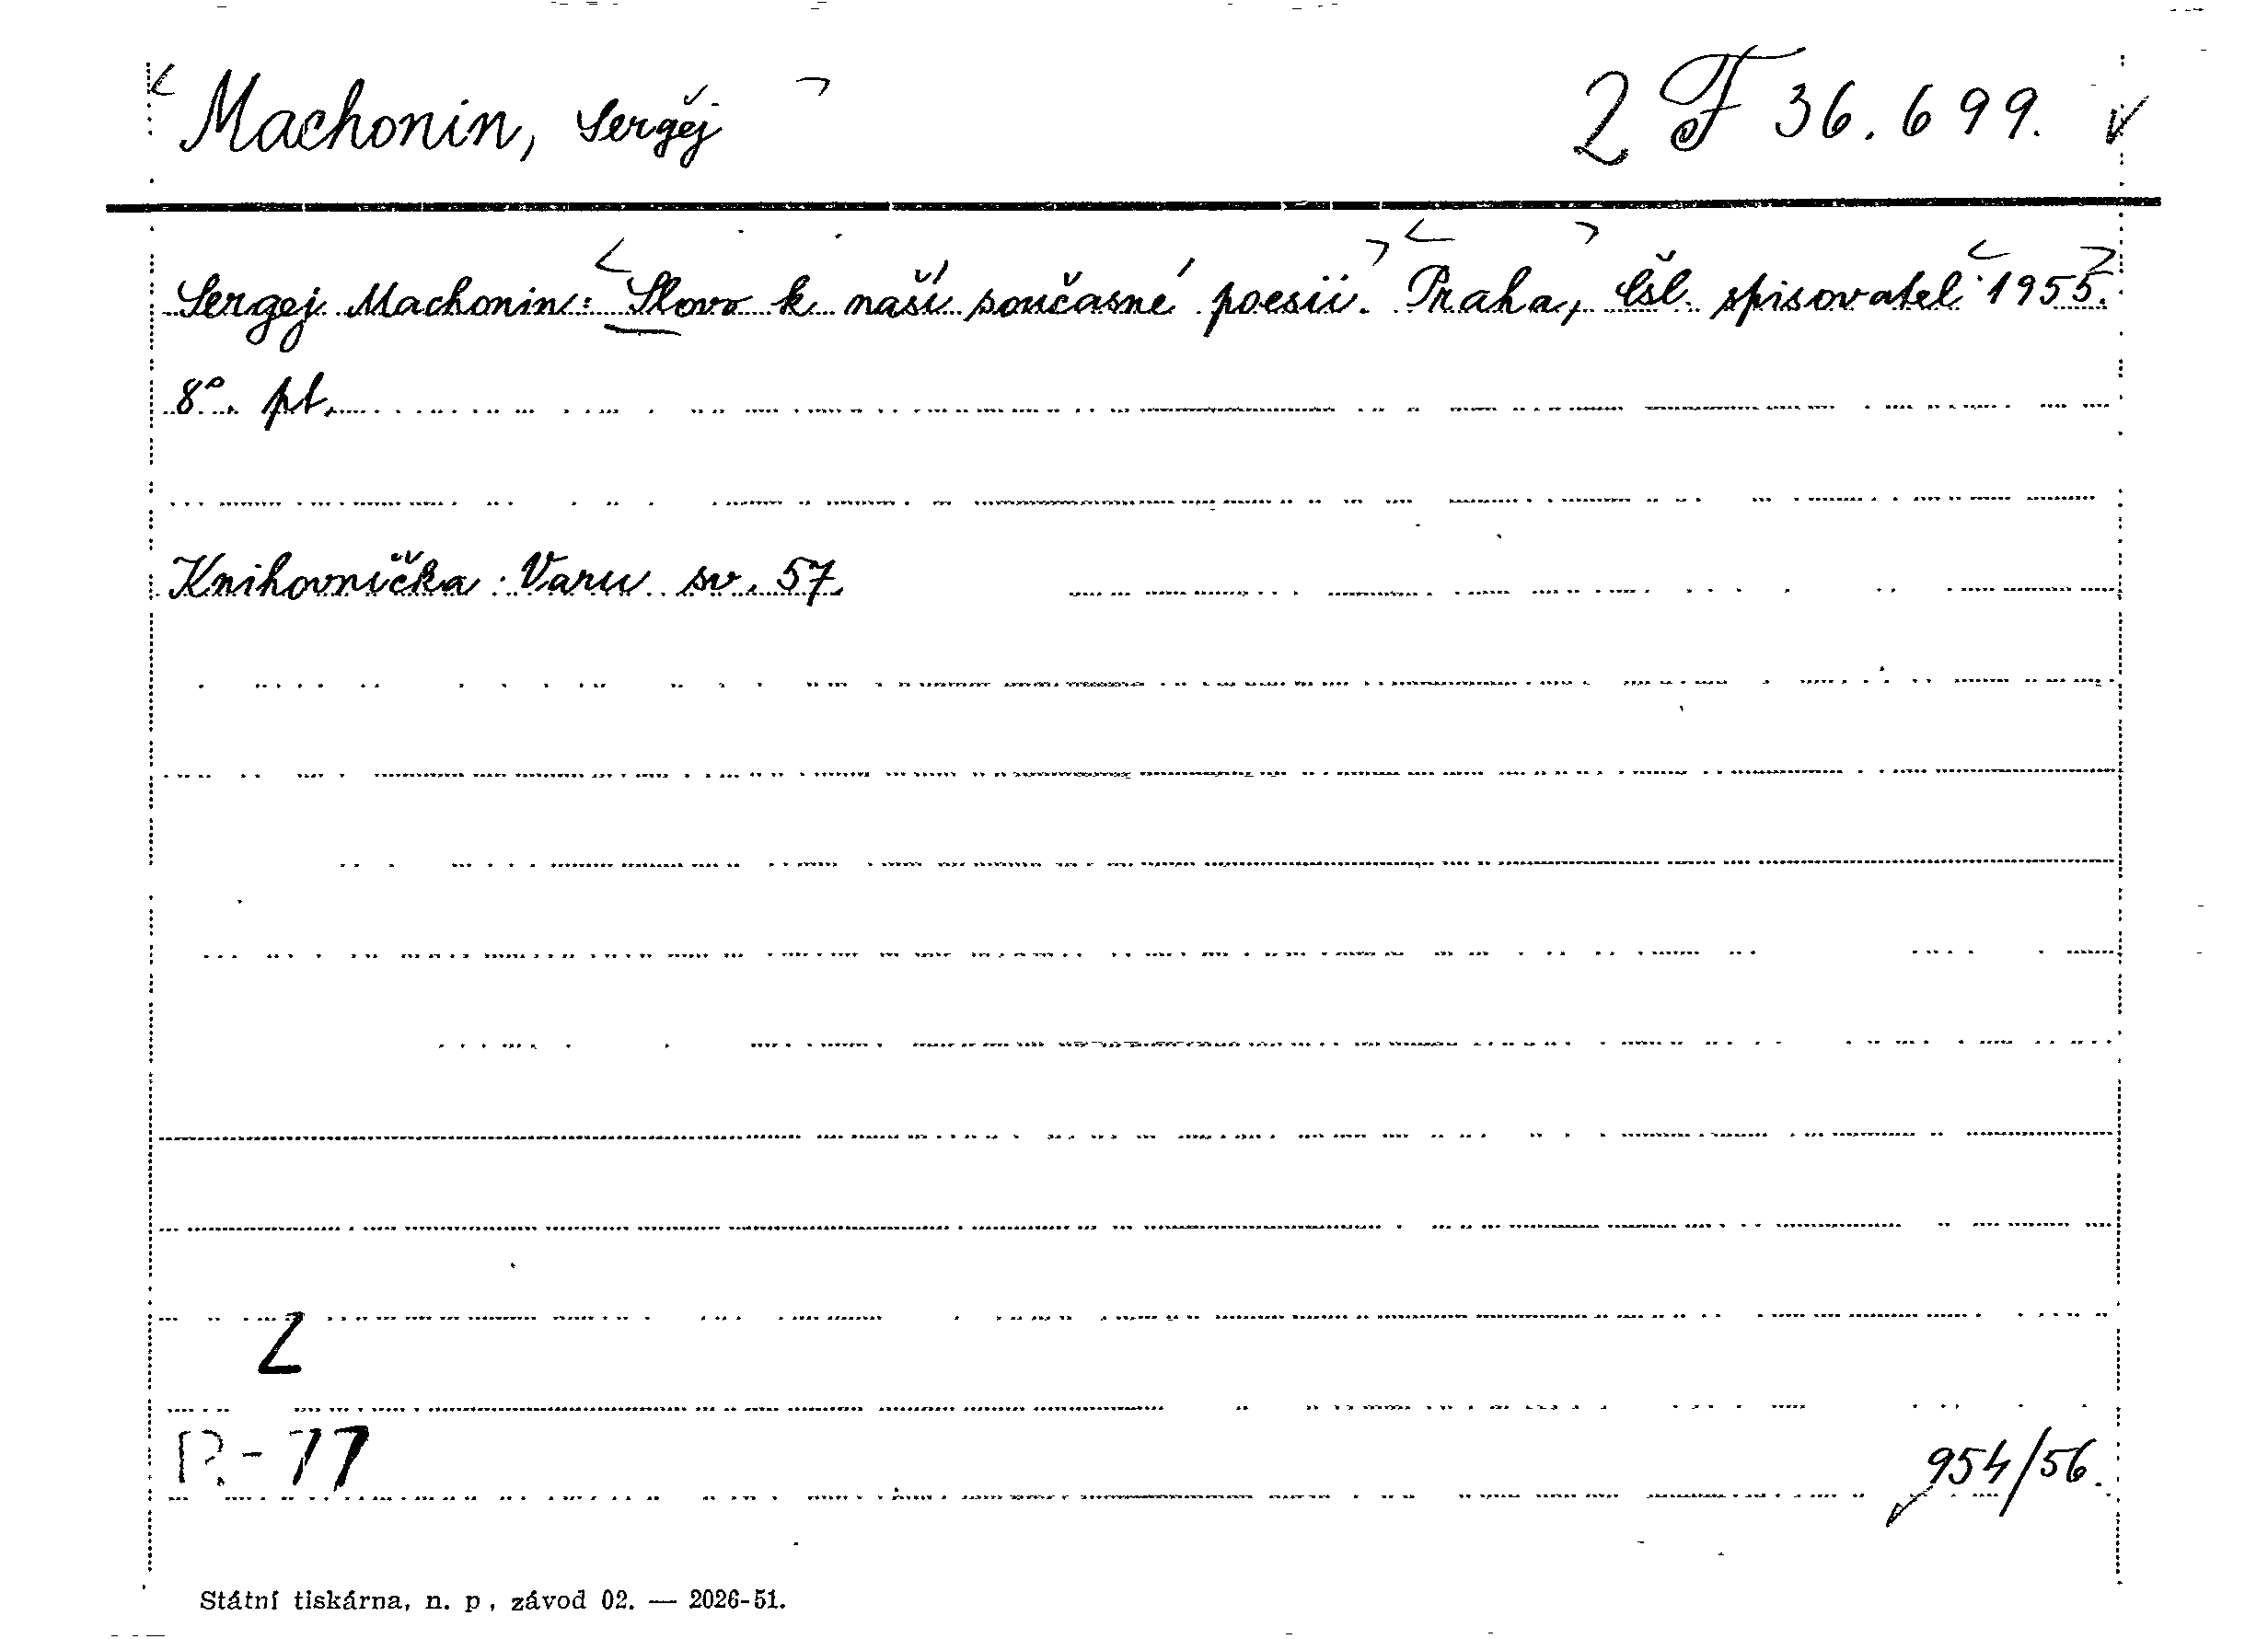 Machonin, Sergěj 2 F 36.699.
Sergej Machonin: Slovo k naší současné poesii. Praha, Čsl. spisovatel 1955.
8°. pt.
Knihovnička Varu sv. 57.
Z
P.-77
954/56.
Státní tiskárna, n. p., závod 02. — 2026-51.